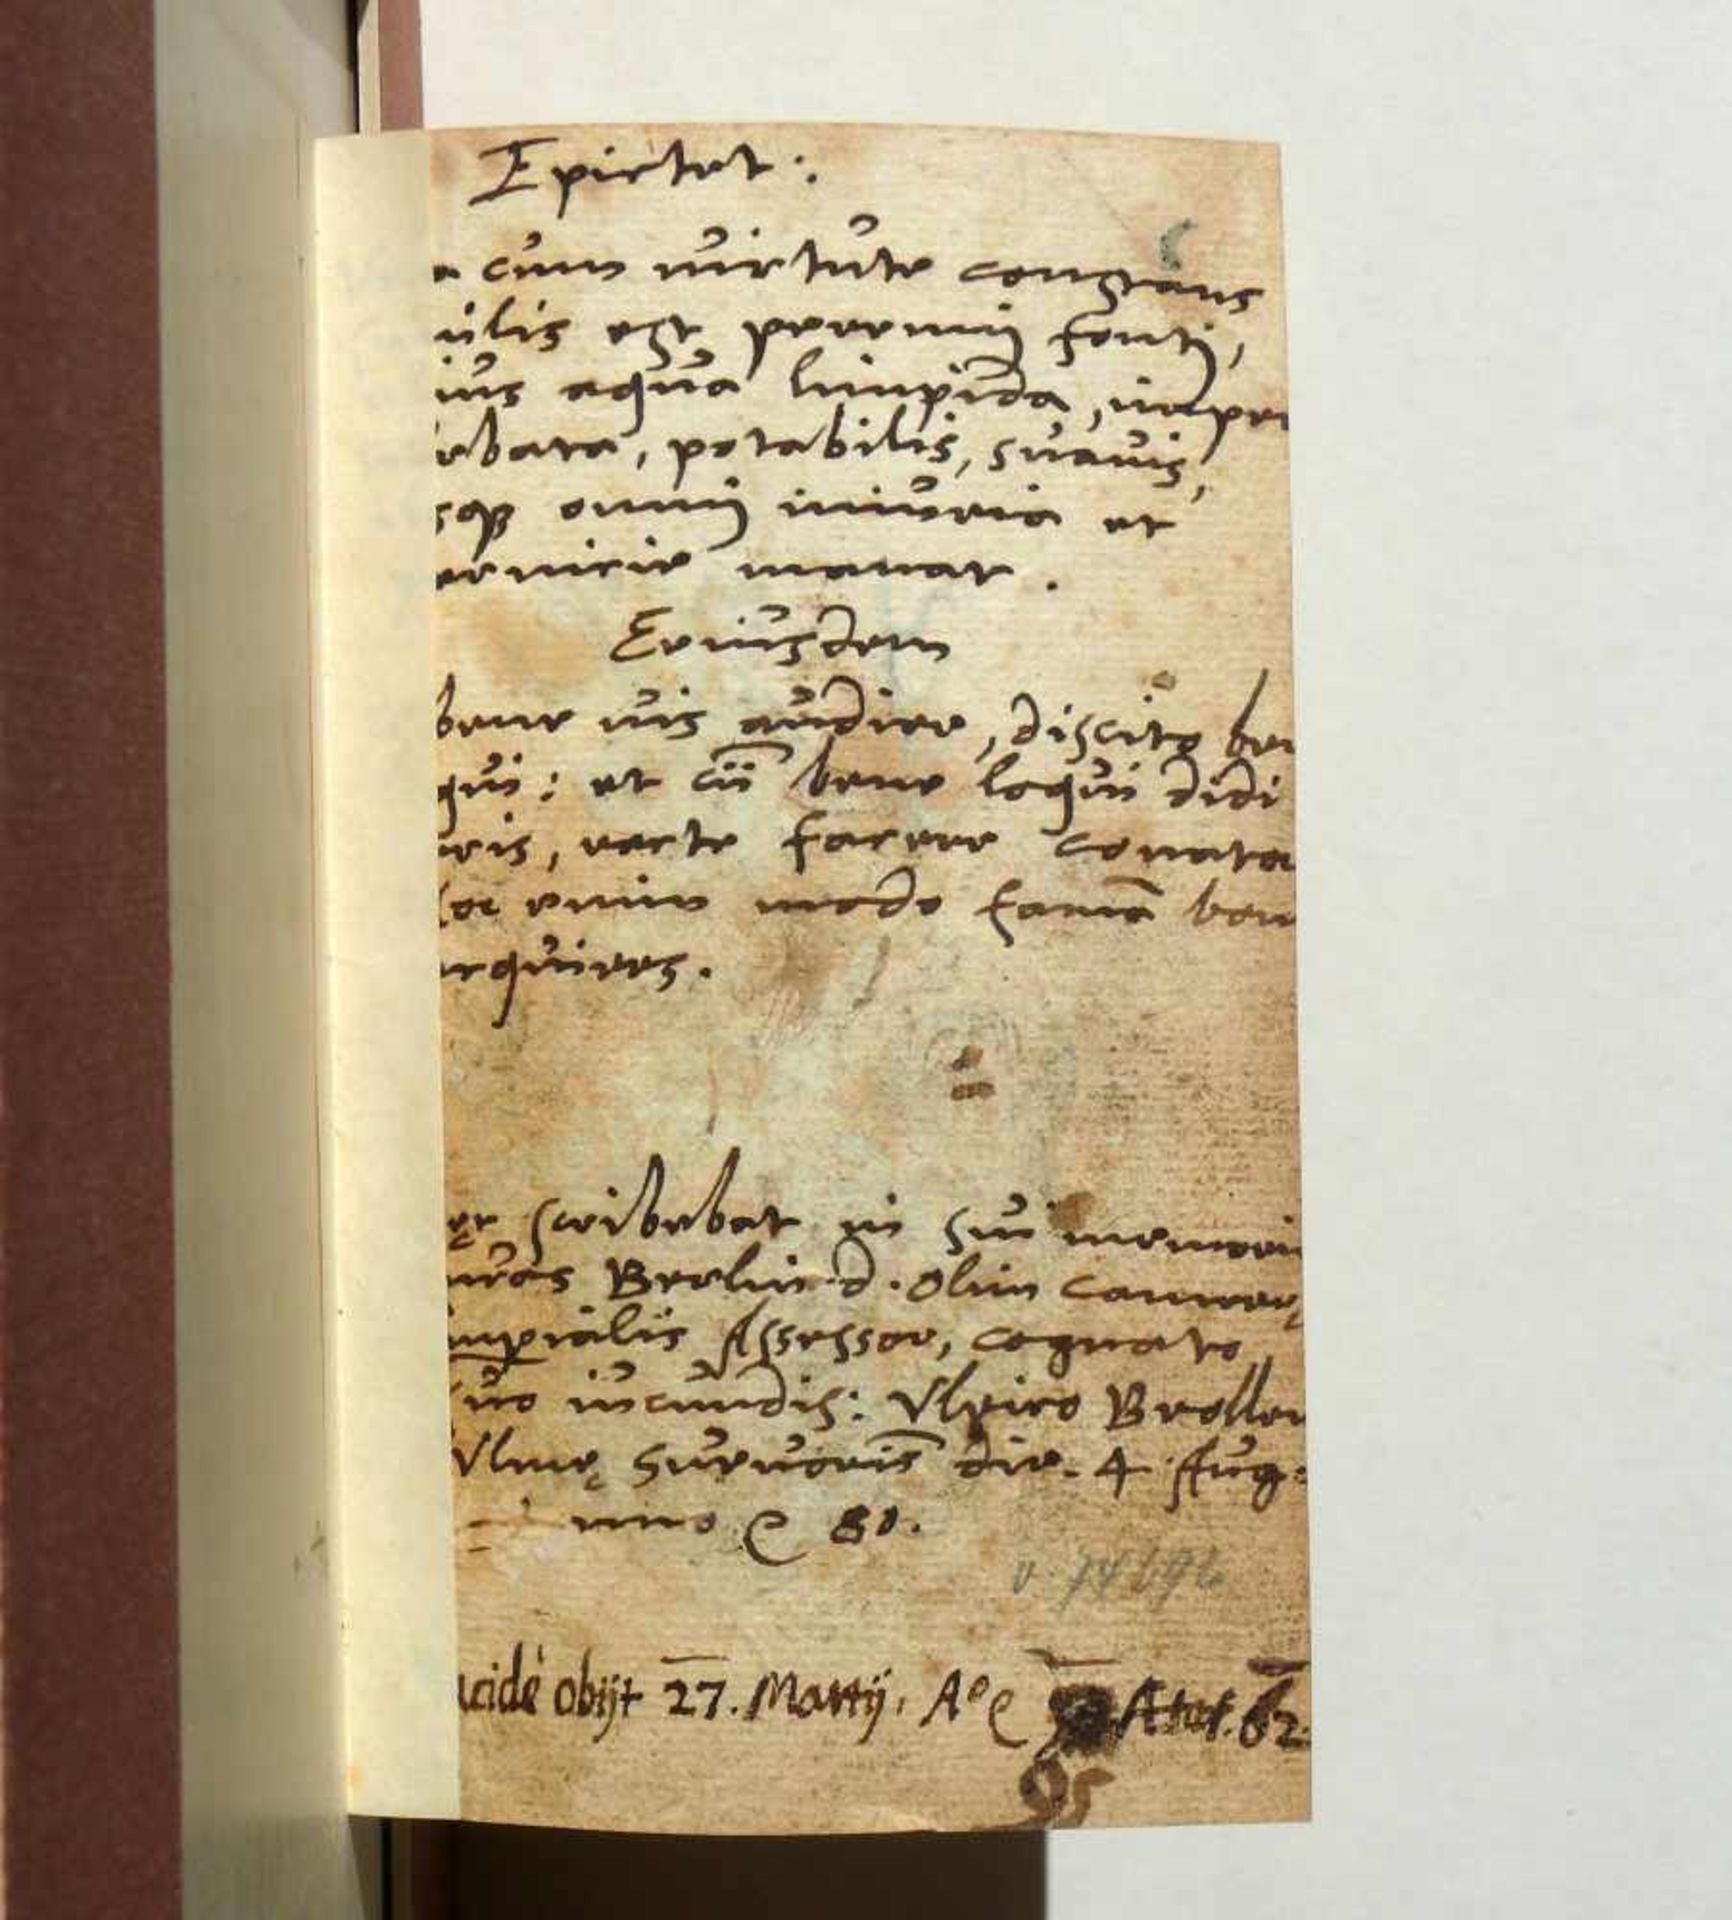 Epictet:
a cum uirtute constans
ilis est perennij fonti,
ius aqua limpida, imper
rbata, potabilis, suauis,
sqȝ omnij iniuria et
ernicie manat.
Eeiusdem
bene uis audire, discito ben
qui: et cũ bene loqui didi
eris, recte facere conator
oc enim modo famã bon
cquires.
ęc scribebat in sui memori
Berlin. d. olim camerę
imperialis Assessor, cognato
suo iucundiss: Vlrico Brollen
Vlmę Sueuorũ die. 4 Aug:
anno @ 80.
v. 74696
ucidè obijt 27. Martij. A° @ Ætat. 62.
95